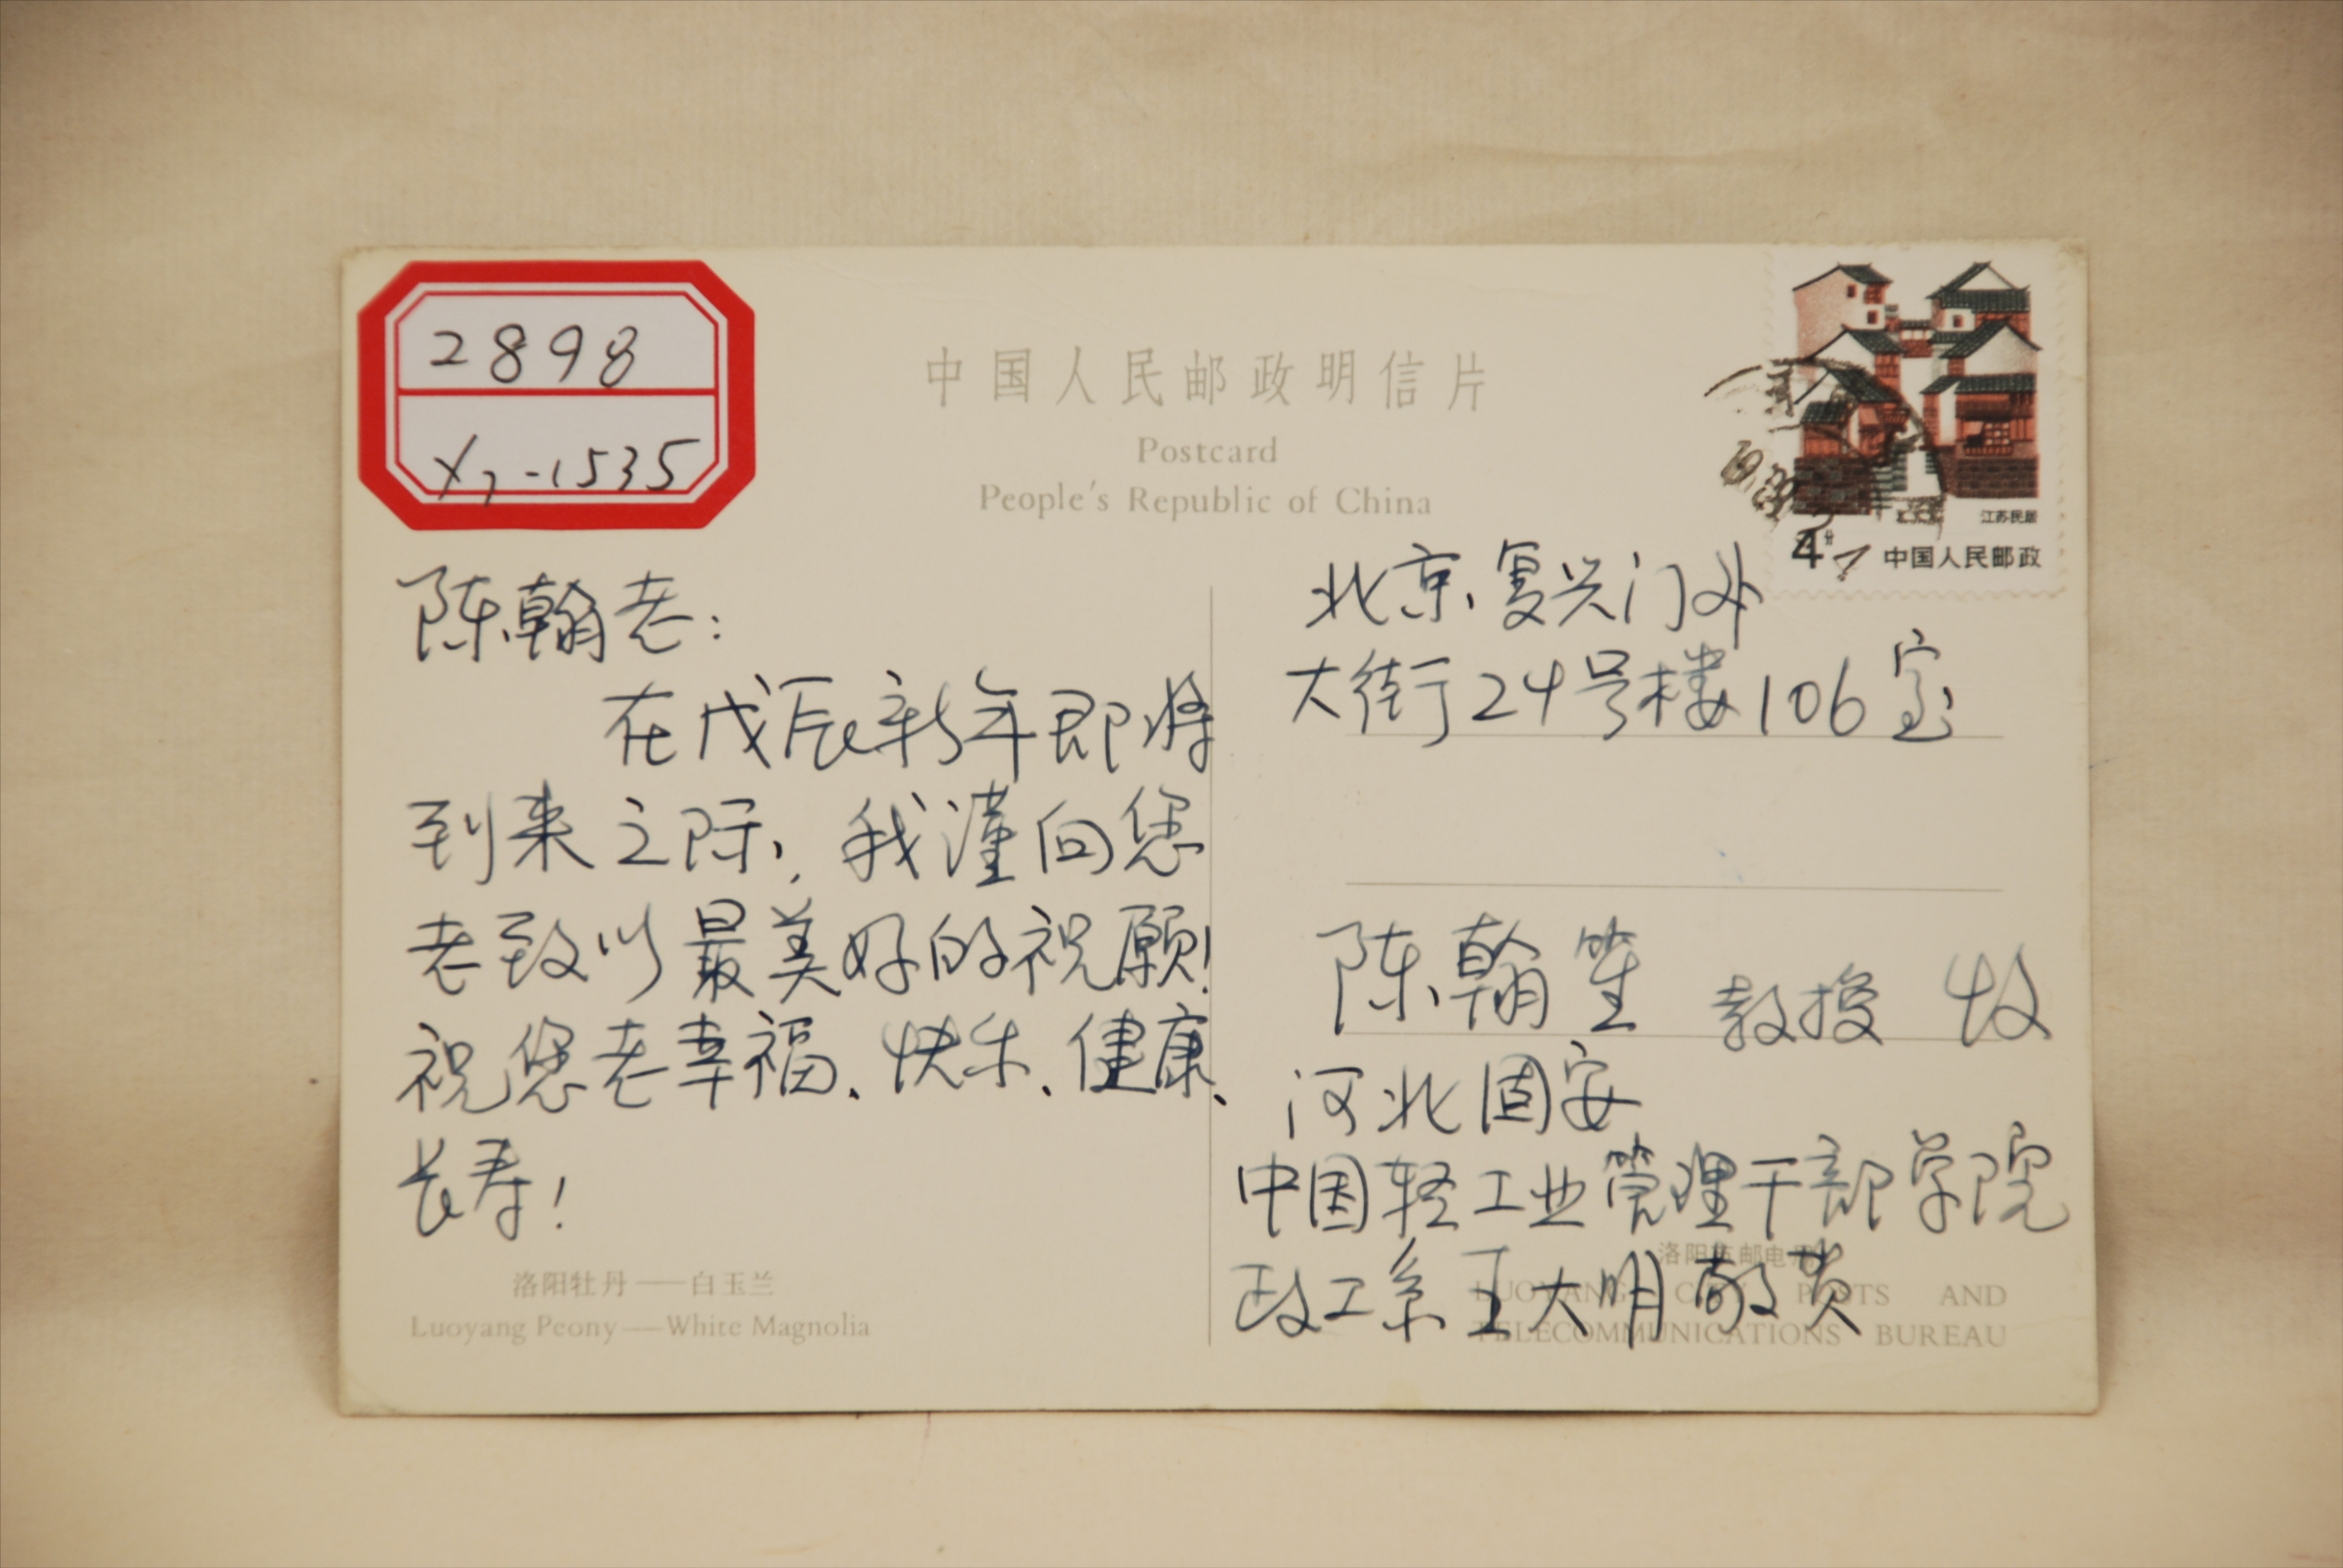 2898
X7-1535
中国人民邮政明信片
Postcard
People's Republic of China
江苏民居
4分
中国人民邮政
陈翰老：
在戊辰新年即将
到来之际，我谨向您
老致以最美好的祝愿！
祝您老幸福、快乐、健康、
长寿！
洛阳牡丹——白玉兰
Luoyang Peony——White Magnolia
北京复兴门外
大街24号楼106室
陈翰笙 教授 收
河北固安
中国轻工业管理干部学院
政工系王大明敬贺
洛阳市邮电局
LUOYANG CITY POSTS AND
TELECOMMUNICATIONS BUREAU